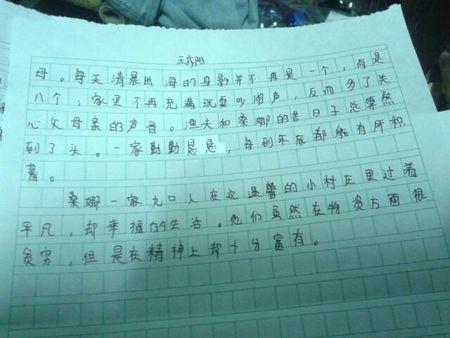 母。每天清晨出海的身影并不再是一个，而是
八个；家里了再充满玩耍吵闹声，反而多了关
心父母亲的声音。渔夫和桑娜的苦日子总算熬
到了头。一家勤勤恳恳，每到年底都能有所积
蓄。
桑娜一家九口人在这温馨的小村庄里过着
平凡，却幸福的生活。他们虽然在物质方面很
贫穷，但是在精神上却十分富有。